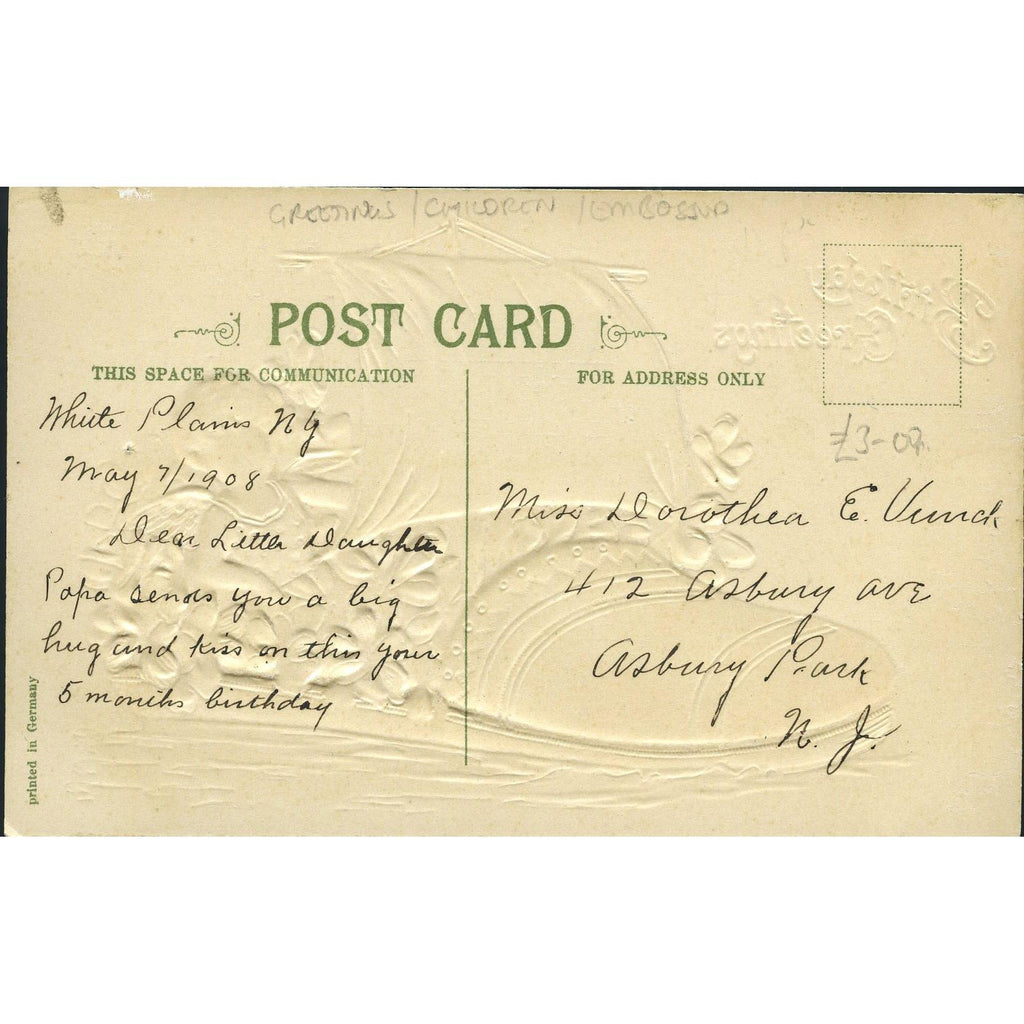 GREETINGS / CHILDREN / EMBOSSED
Birthday
Greetings
POST CARD
THIS SPACE FOR COMMUNICATION
FOR ADDRESS ONLY
£3-00
White Plains NY
May 7/1908
Dear Little Daughter
Papa sends you a big
hug and kiss on this your
5 months birthday
Miss Dorothea E.
412 Asbury ave
Asbury Park
N. J.
printed in Germany